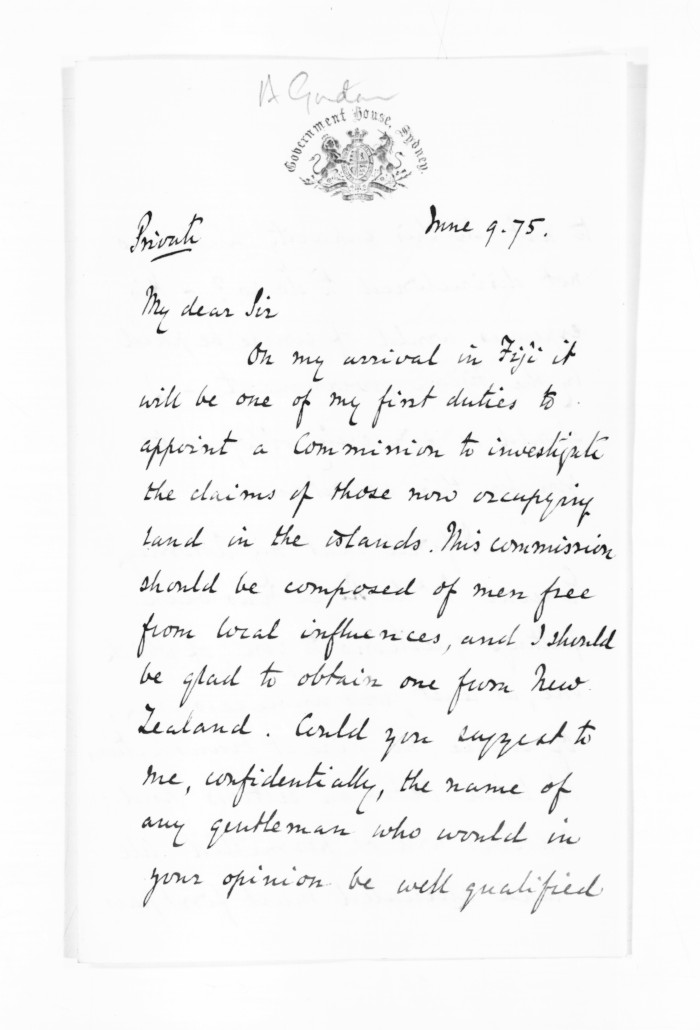 A Gordon
Government House, Sydney.
Private
June 9. 75.
My dear Sir
On my arrival in Fiji it
will be one of my first duties to
appoint a Commission to investigate
the claims of those now occupying
land in the islands. This commission
should be composed of men free
from local influences, and I should
be glad to obtain one from New
Zealand. Could you suggest to
me, confidentially, the name of
any gentleman who would in
your opinion be well qualified